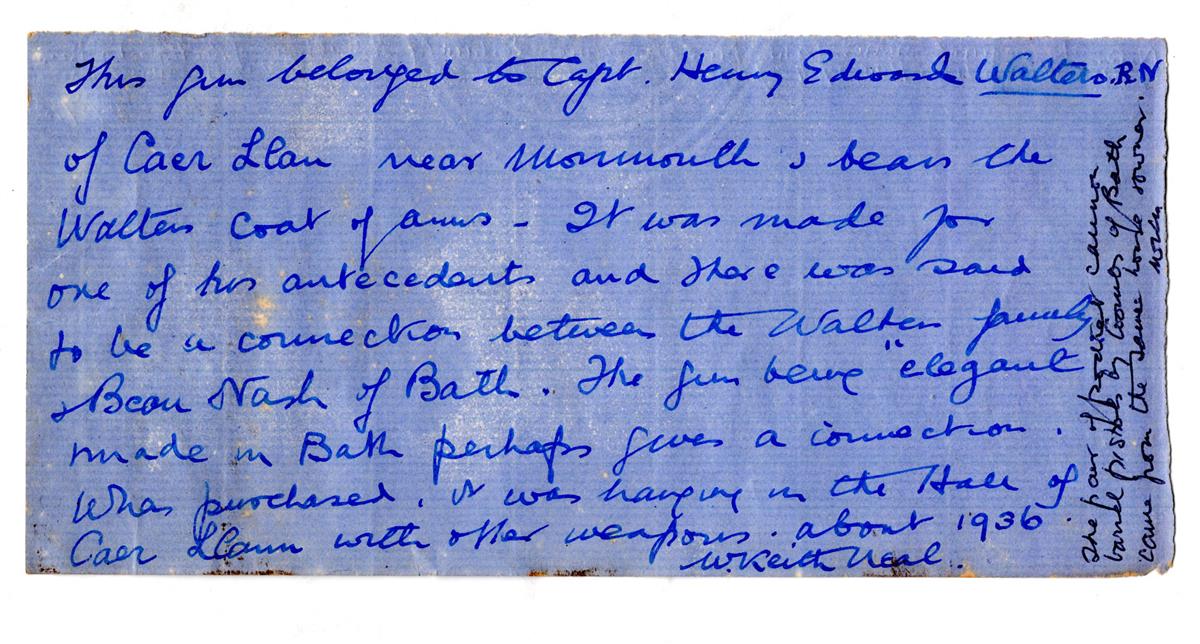 This gun belonged to Capt. Henry Edward Walters. RN
of Caer Llan near Monmouth & bears the
Walters Coat of arms - It was made for
one of his antecedents and there was said
to be a connection between the Walters family
& Beau Nash of Bath. The gun being "elegant
made in Bath perhaps gives a connection.
When purchased, it was hanging in the Hall of
Caer Llann with other weapons. about 1936.
W. Keith Neal.
The pair of pocket cannon
barrel pistols by of Bath
came from the same house & owner.